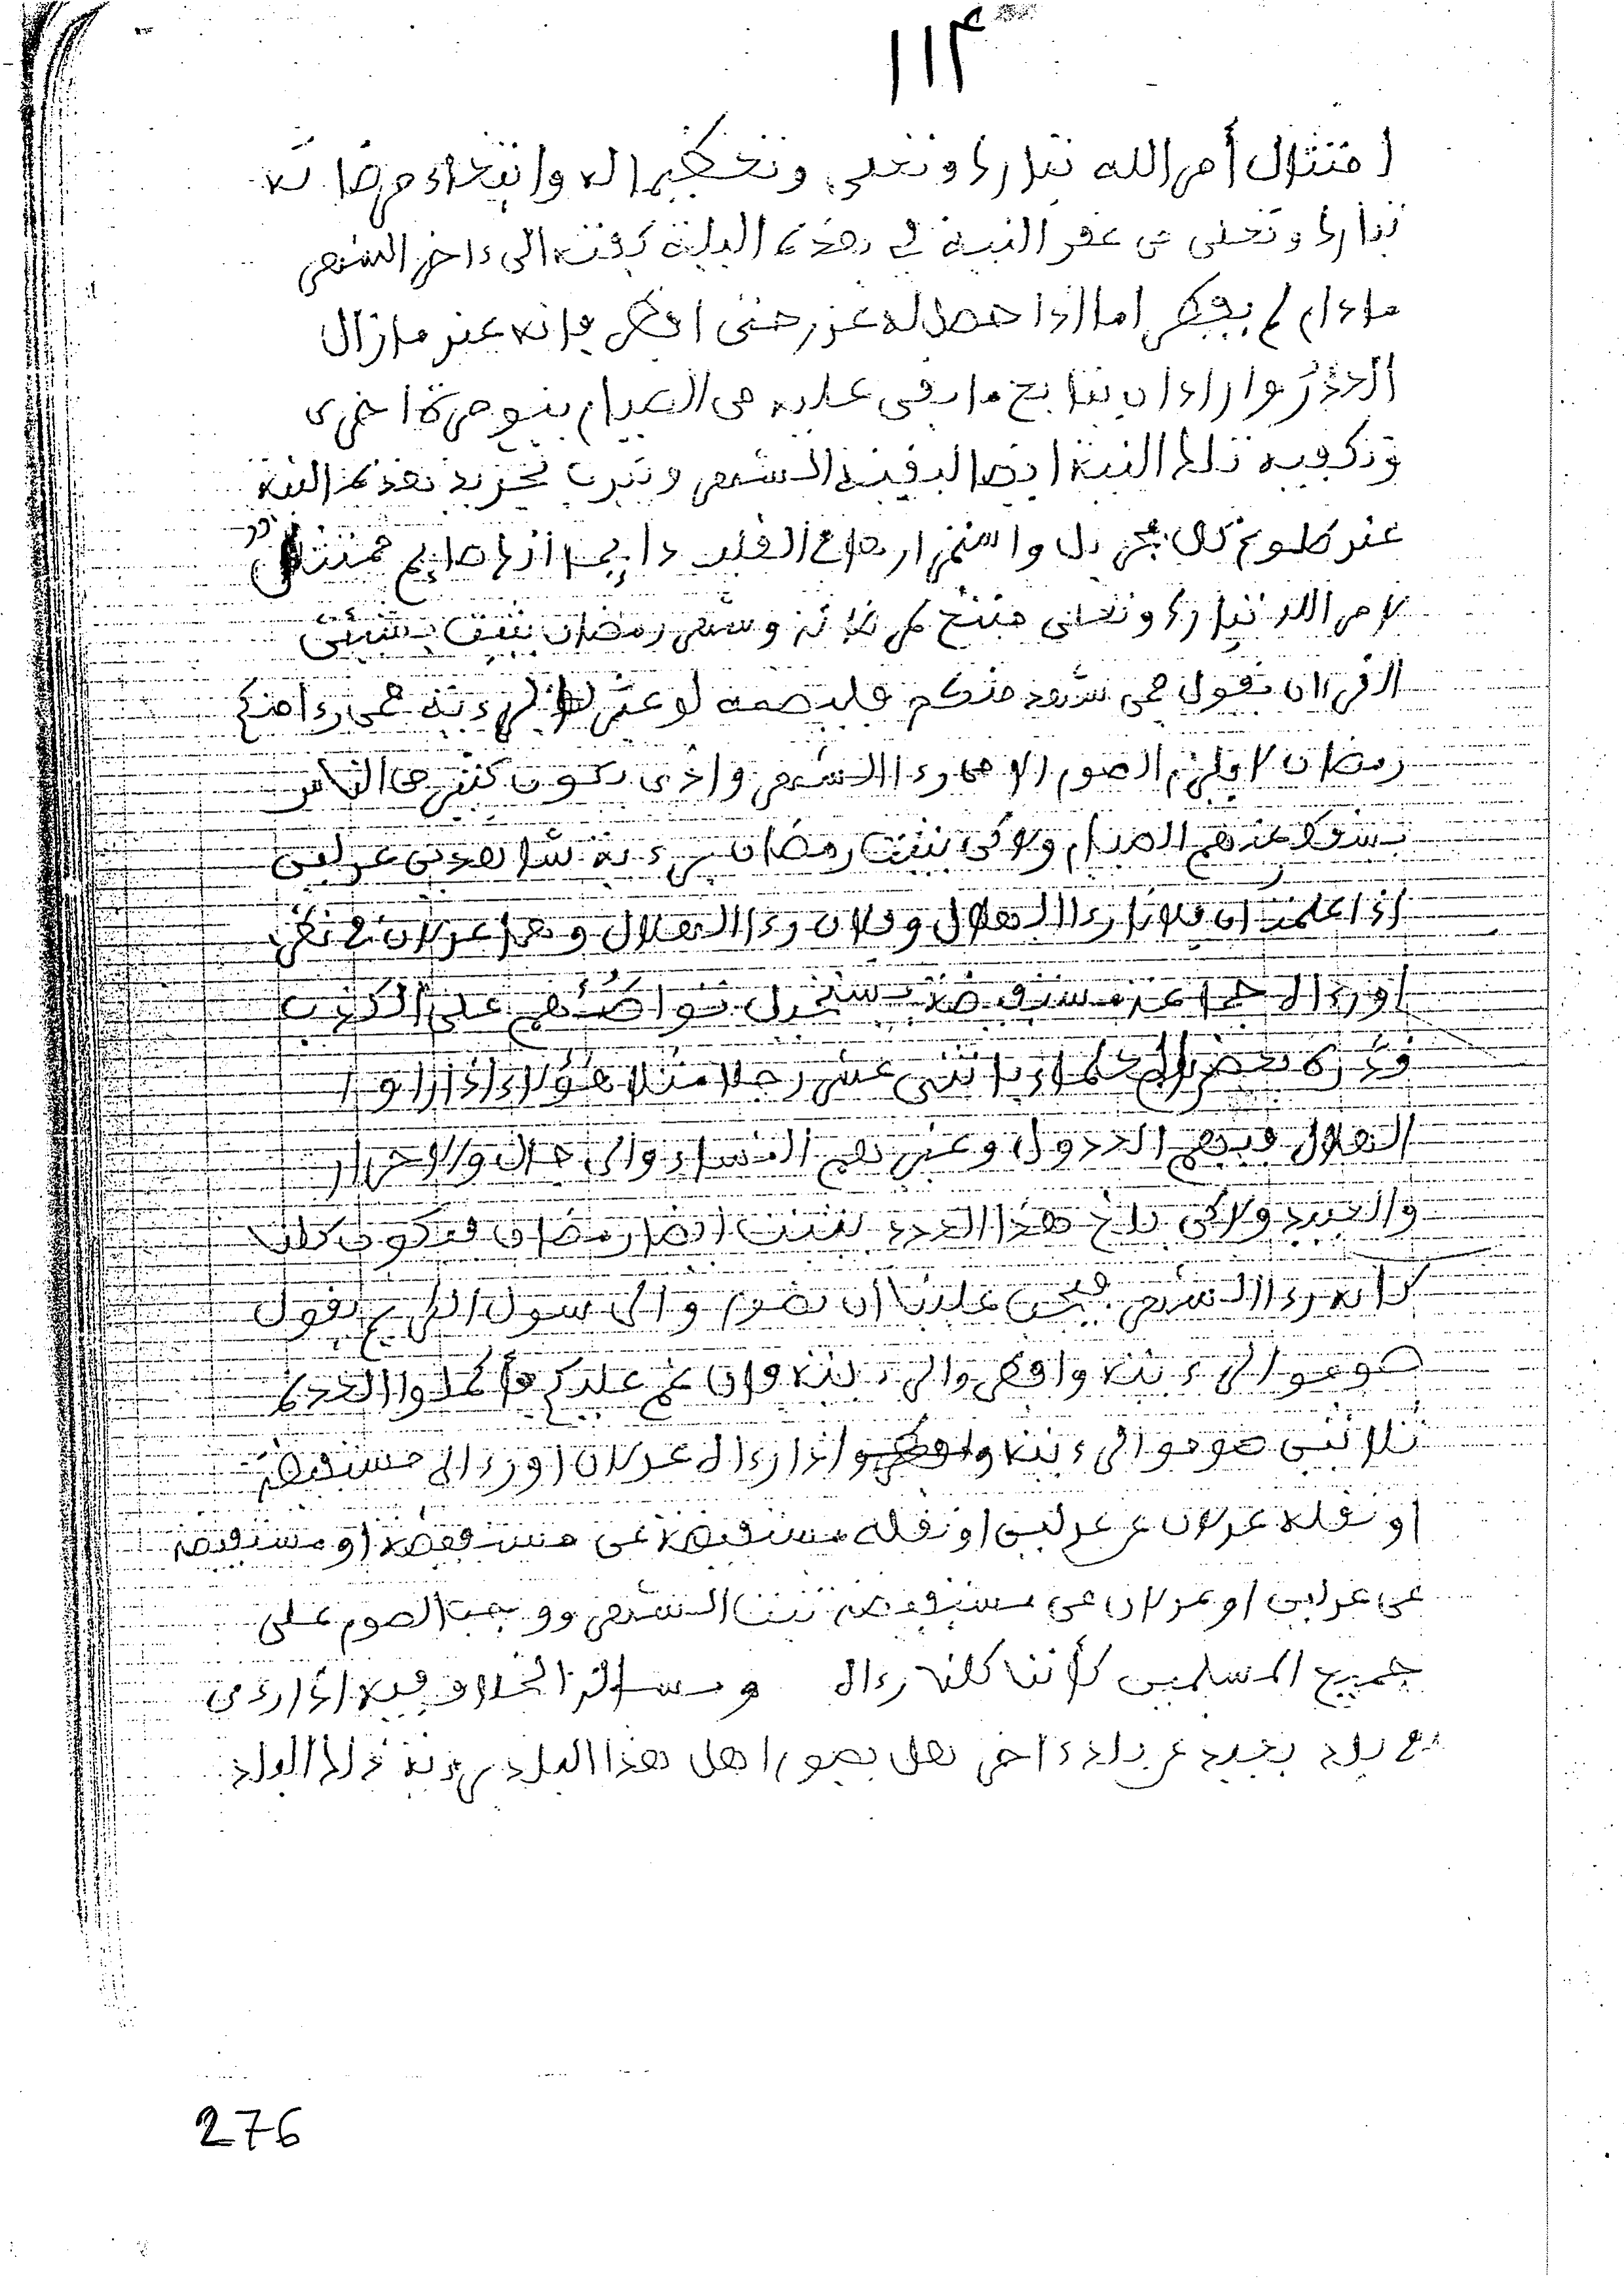 ١١٣
امتثال أمر الله تبارك وتعلى وتعظيما له وابتغاء مرضاته
تبارك وتعلى من عقد النية في هذه الليلة كفته الى ءاخر الشهر
مادام لم يفطر اما اذا حصل له عذر حتى افطر فإنه عند ما زال
العذر واراد ان يتابع ما بقى عليه من الصيام ينوي مرة اخرى
وتكفيه تلك النية ايضا لبقية الشهر وندب تجديد هذه النية
عند طلوع كل فجر بل واستمرارها في القلب دايما انا صايم ممتثل
لامر الله تبارك وتعلى وشهر رمضان يثبت بشيئين
القرءان يقول فمن شهد منكم فليصمه لو عثر للرءية فمن رءا منكم
رمضان لا يلزم الصوم الا من رءا الشهر واذن يكون كثير من الناس
يسقط عنهم الصيام ولاكن يثبت رمضان برءية شاهدين عدلين
اذا علمنا ان فلانا رءا الهلال وفلان رءا الهلال وهما عدلان في نظر
او رءاه جماعة مستفيضة يستحيل تواطئهم على الكذب
قدره بعض العلماء باثنى عشر رجلا مثلا هؤلاء اذا راوا
الهلال فيهم العدول وغيرهم النساء والرجال والاحرار
والعبيد ولاكن بلغ هذا العدد يثبت ايضا رمضان فيكون كلنا
كانه رءا الشهر فيجب علينا ان نصوم والرسول الكريم يقول
صوموا لرءيته وافطروا لرءيته فإن غم عليكم فأكملوا العدة
ثلاثين صوموا لرءيته وافطروا اذا رءاه عدلان او رءاه مستفيضة
او نقله عدلان عن عدلين او نقله مستفيضة عن مستفيضة او مستفيضة
عن عدلين او عدلان عن مستفيضة ثبت الشهر ووجب الصوم على
جميع المسلمين كأننا كلنا رءاه ومسالة الخلاف فيه اذا رءى
في بلد بعيد عن بلد ءاخر هل يصوم اهل هذا البلد برءية ذلك البلد
276